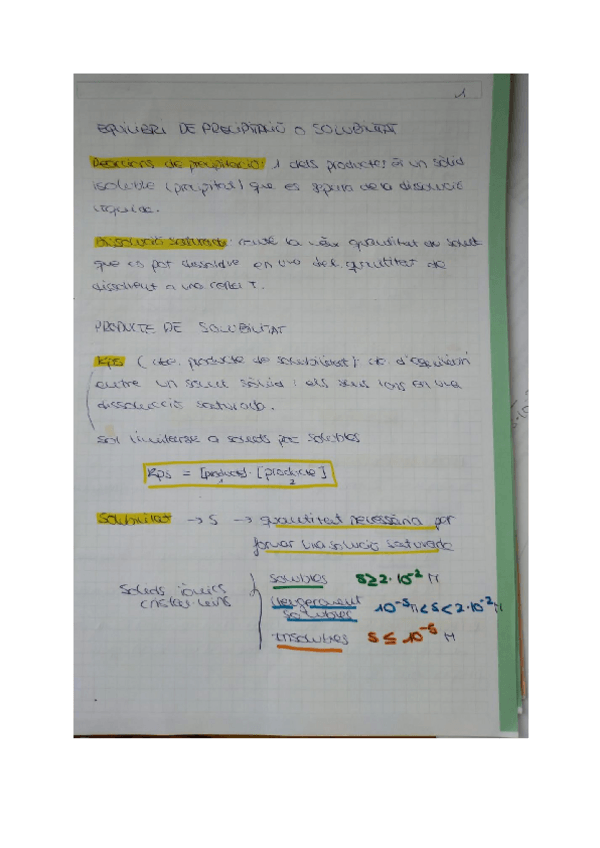 1
EQUILIBRI DE PRECIPITACIÓ O SOLUBILITAT
Reaccions de precipitació: 1 dels productes és un sòlid
isoluble (precipitat) que es separa de la dissolució
líquida.
dissolució saturada: la màx quantitat de solut
que es pot dissoldre en una det. quantitat de
dissolvent a una certa T.
PRODUCTE DE SOLUBILITAT
Kps (cte. producte de solubilitat): cte. d'equilibri
entre un solut sòlid i els seus ions en una
dissolució saturada.
Sol limitar-se a solids poc solubles
Kps = [producte]·[producte]
1 2
Solubilitat → S → quantitat necessària per
formar una solució saturada
Solids iònics
cristal·lins
solubles S≥2·10⁻² M
lleugerament
solubles 10⁻⁵M<S<2·10⁻²M
insolubles S≤10⁻⁵ M